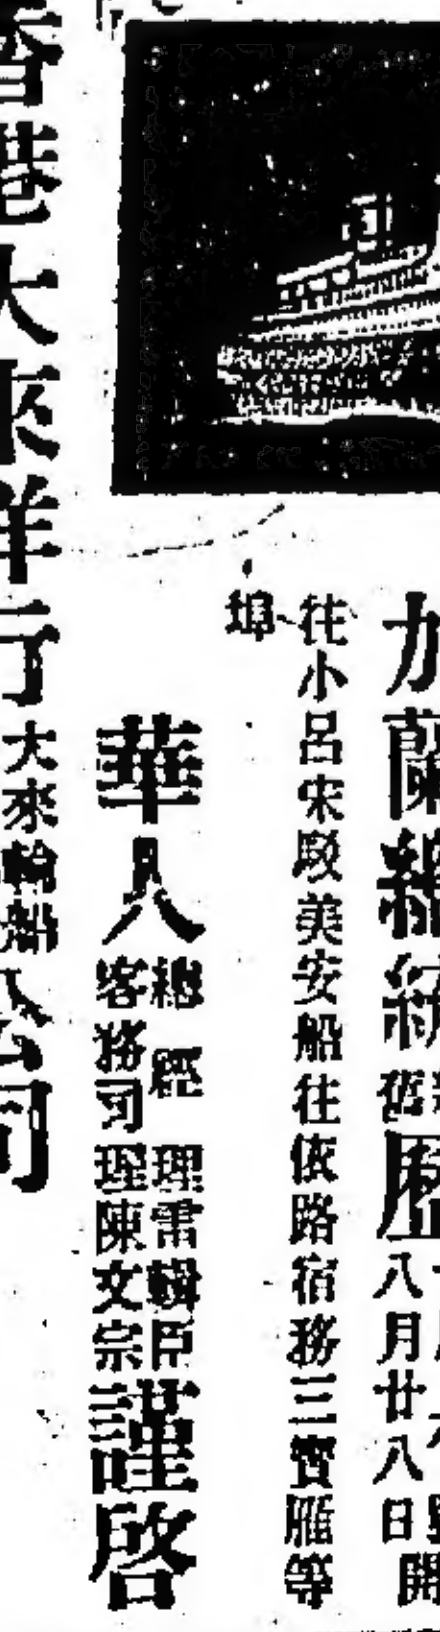 加蘭總統
舊歷八月廿八日開
往小呂宋駁美安船往依路宿務三寶雁等
埠
華人
總經理雷輯臣
客務司理陳文宗
謹啓
香港大來洋行大來輪船公司